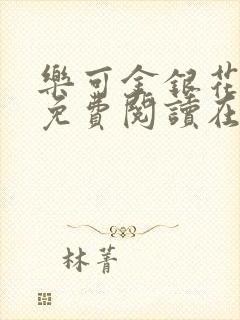 樂可金銀花
免費閱讀在
林菁